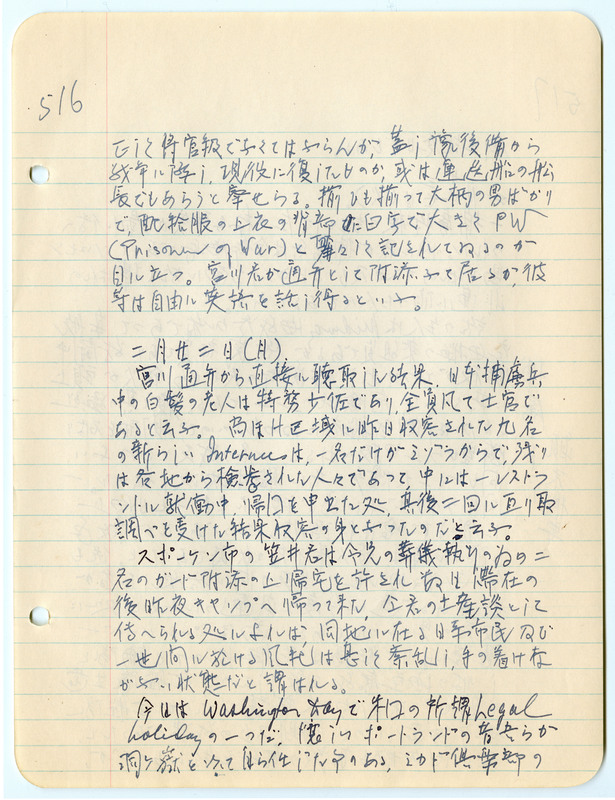 516
正しく将官級でなくてはならんが, 蓋し予後備から
数年に渉り, 現役に復したものか, 或は運送船の船
長でもあらうと察せらる。揃ひも揃って大柄の男ばかり
で, 配給服の上衣の背部に白字で大きく PW
(Prisoner of War) と 記されてゐるのが
目に立つ。宮川君が通弁として附添ふて居るが, 彼
等は自由に英語を話し得るといふ。
二月廿二日(月)
宮川通弁から直接に聴取した結果, 日本捕虜兵
中の白髪の老人は特務少佐であり, 全員凡て士官で
あると云ふ。尚ほH区域に昨日収容された九名
の新らしい Internees は, 一名だけがミゾラからで, 残り
は各地から検挙された人々であって, 中には一レストラ
ントに就働中, 帰国を申出た処, 其後二回に亘り取
調べを受けた結果収容の身となったのだと云ふ。
スポーケン市の笠井君は令兄の葬儀執行の為め二
名のガード附添の上帰宅を許され 数日滞在の
後昨夜キャンプへ帰って来た, 全君の土産談として
伝へられる処によれば, 同地に在る日系市民及び
一世間に於ける風紀は甚しく紊乱し, 手の着けな
がない状態だと謂はれる。
今日は Washington Day で米国の所謂 Legal
holiday の一つだ, 嘗てポートランドの
洞ヶ嶽と 自ら任じた のある, ミカド倶楽部の